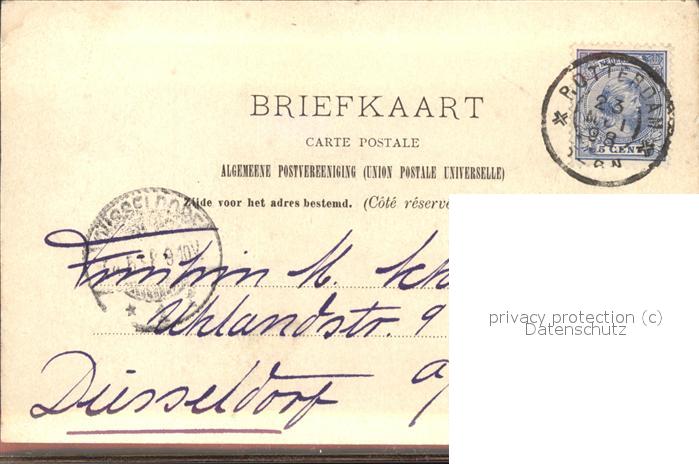 BRIEFKAART
CARTE POSTALE
ALGEMEENE POSTVEREENIGING (UNION POSTALE UNIVERSELLE)
Zijde voor het adres bestemd. (Côté réservé
5 CENT
ROTTERDAM
23
98
DÜSSELDORF
Fräulein M. Sch
Uhlandstr. 9
Düsseldorf a/
privacy protection (c)
Datenschutz